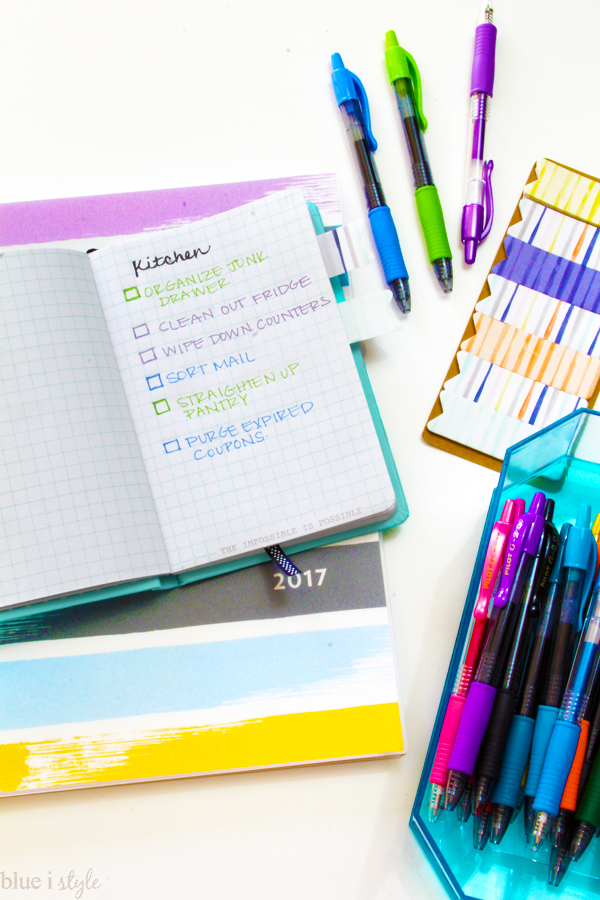 Kitchen
ORGANIZE JUNK
DRAWER
CLEAN OUT FRIDGE
WIPE DOWN COUNTERS
SORT MAIL
STRAIGHTEN UP
PANTRY
PURGE EXPIRED
COUPONS
THE IMPOSSIBLE IS POSSIBLE
2017
PILOT G-2
blue i style